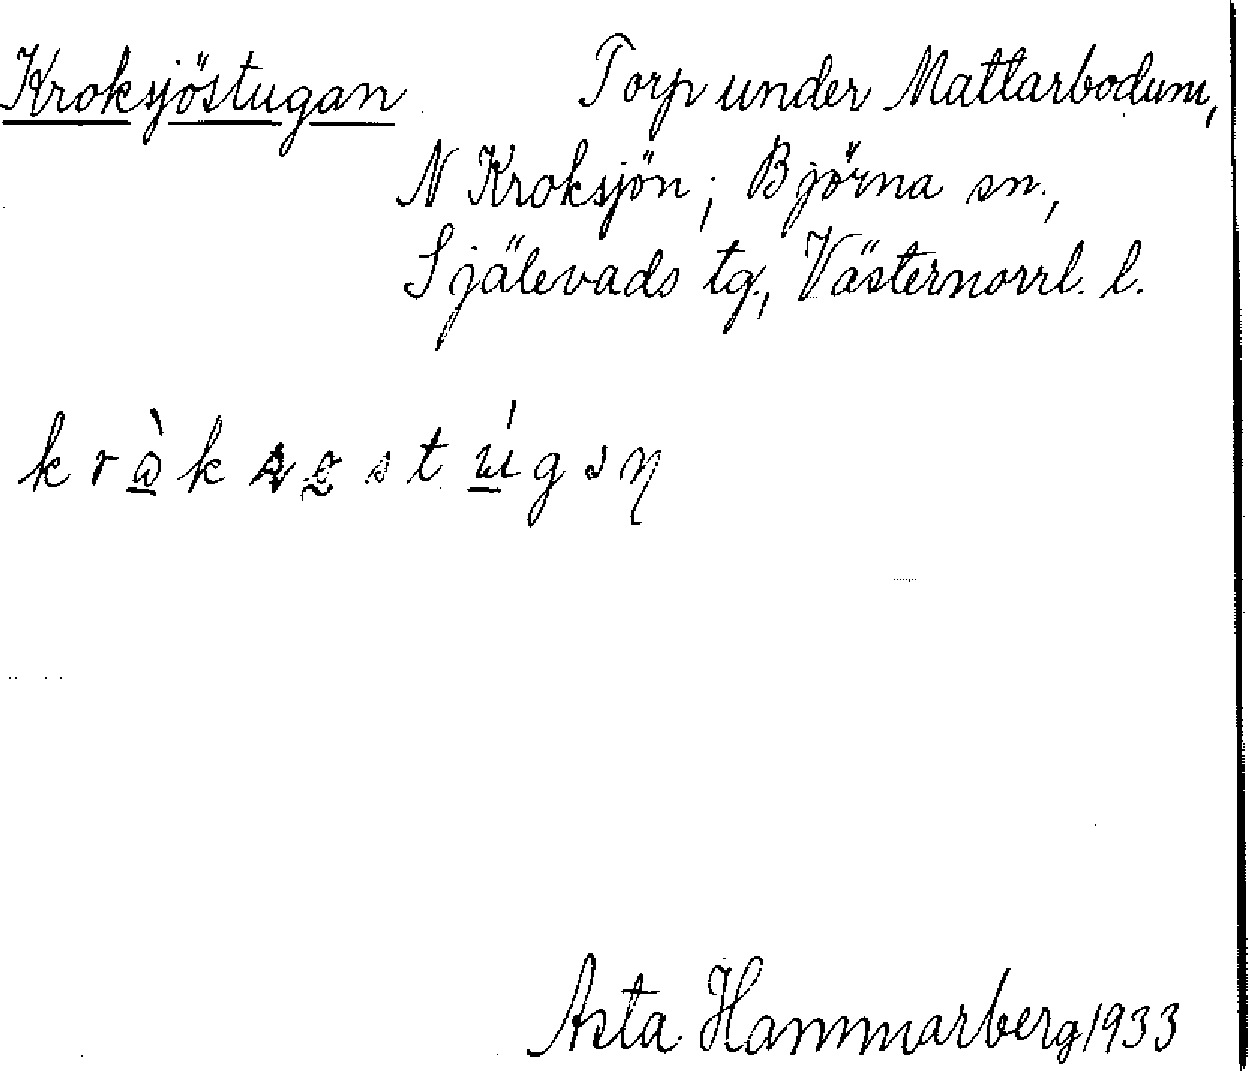 Kroksjöstugan Torp under Mattarbodum,
N Kroksjön; Björna sn.,
Själevads tg., Västernorrl. l.
Asta Hammarberg 1933